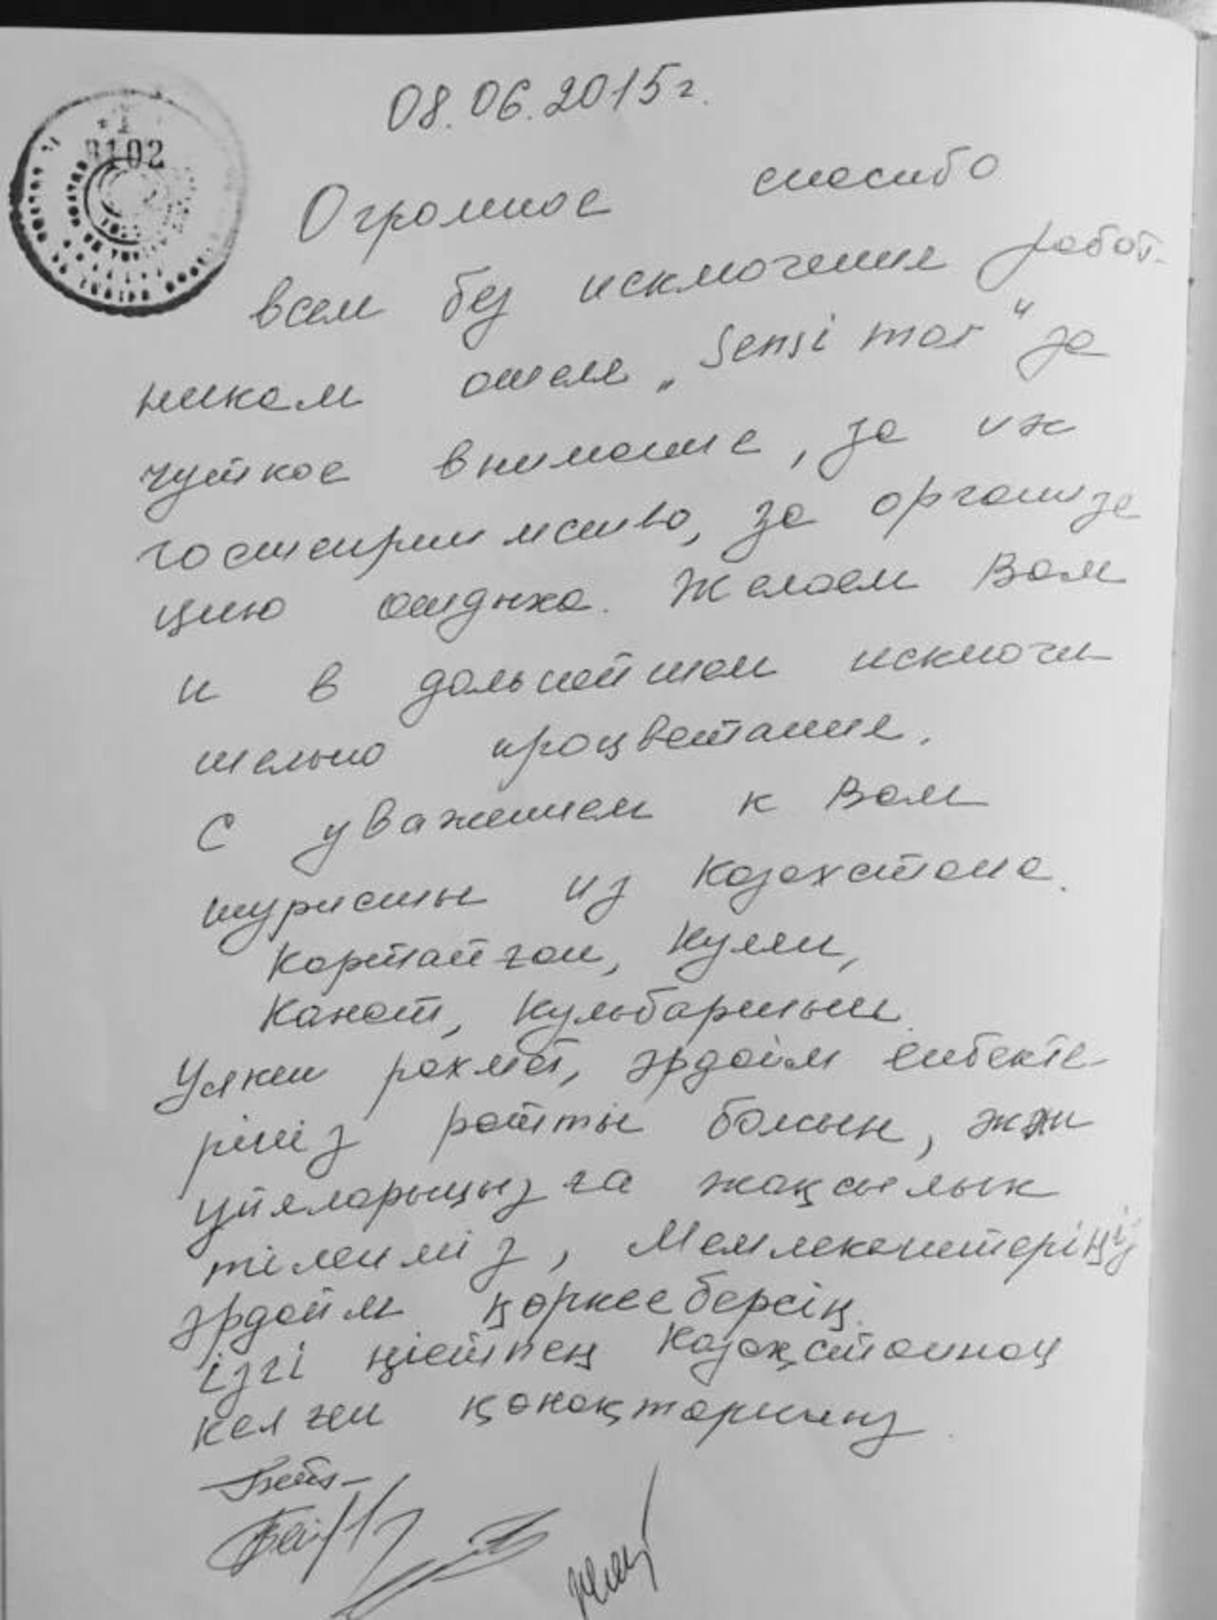 08.06.2015г.
102
Огромное спасибо
всем без исключения работ-
никам отеля „Sensimar“ за
чуткое внимание, за их
гостеприимство, за организа
цию отдыха. Желаем Вам
и в дальнейшем исключи
тельно процветания.
С уважением к Вам
туристы из Казахстана.
Кортайган, Куляи,
Канат, Кульбаршын.
Улкен рахмет, әрдайм еңбекте-
ріңіз ратты болсын,
үйяларыңызға жақсылык
тілейміз, Мемлекеттеріңіз
әрдайм қөркееберсің.
ізгі ңіетпең Казақстаннаң
келген қонақтарыңыз.